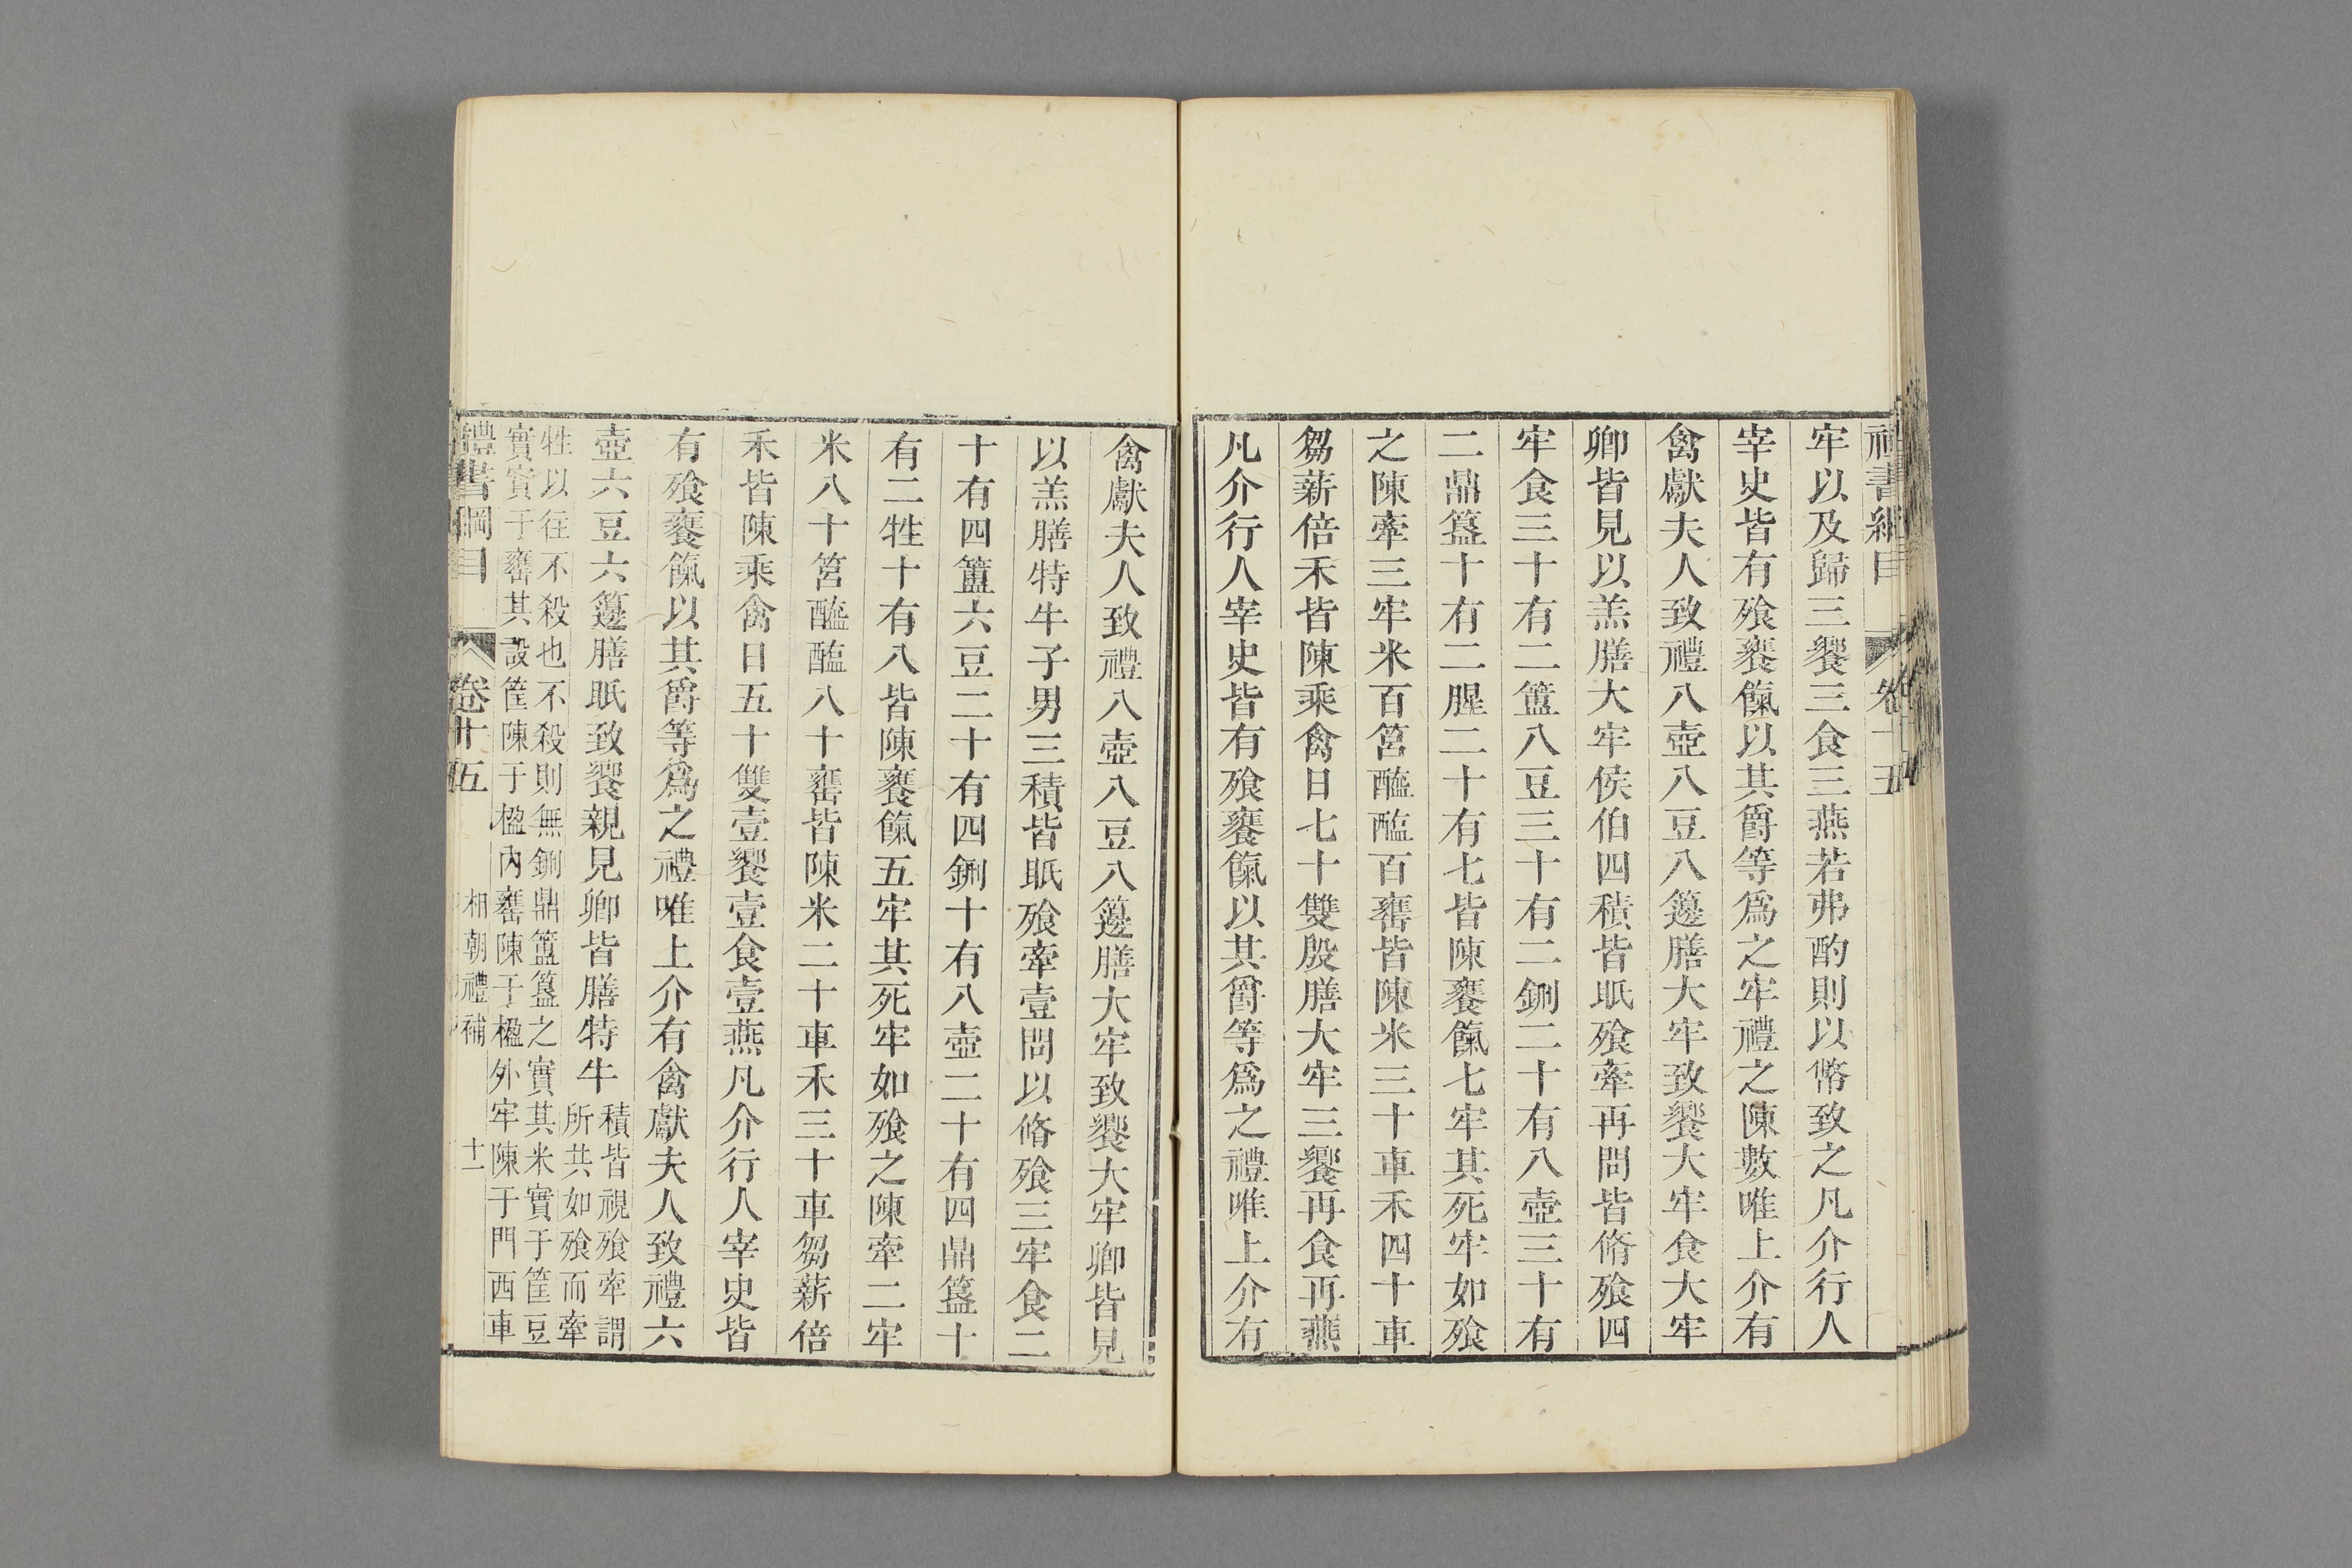 禮書綱目 卷十五
牢以及歸三饗三食三燕若弗酌則以幣致之凡介行人
宰史皆有飱饔餼以其爵等爲之牢禮之陳數唯上介有
禽獻夫人致禮八壺八豆八籩膳大牢致饗大牢食大牢
卿皆見以羔膳大牢侯伯四積皆眡飱牽再問皆脩飱四
牢食三十有二簠八豆三十有二鉶二十有八壺三十有
二鼎簋十有二腥二十有七皆陳饔餼七牢其死牢如飱
之陳牽三牢米百筥醯醢百罋皆陳米三十車禾四十車
芻薪倍禾皆陳乘禽日七十雙殷膳大牢三饗再食再燕
凡介行人宰史皆有飱饔餼以其爵等爲之禮唯上介有
禽獻夫人致禮八壺八豆八籩膳大牢致饗大牢卿皆見
以羔膳特牛子男三積皆眡飱牽壹問以脩飱三牢食二
十有四簠六豆二十有四鉶十有八壺二十有四鼎簋十
有二牲十有八皆陳饔餼五牢其死牢如飱之陳牽二牢
米八十筥醯醢八十罋皆陳米二十車禾三十車芻薪倍
禾皆陳乘禽日五十雙壹饗壹食壹燕凡介行人宰史皆
有飱饔餼以其爵等爲之禮唯上介有禽獻夫人致禮六
壺六豆六籩膳眡致饗親見卿皆膳特牛
積皆視飱牽謂
所共如飱而牽
牲以往不殺也不殺則無鉶鼎簠簋之實其米實于筐豆
實實于罋其設筐陳于楹內罋陳于楹外牢陳于門西車
禮書綱目 卷十五 相朝禮補 十一